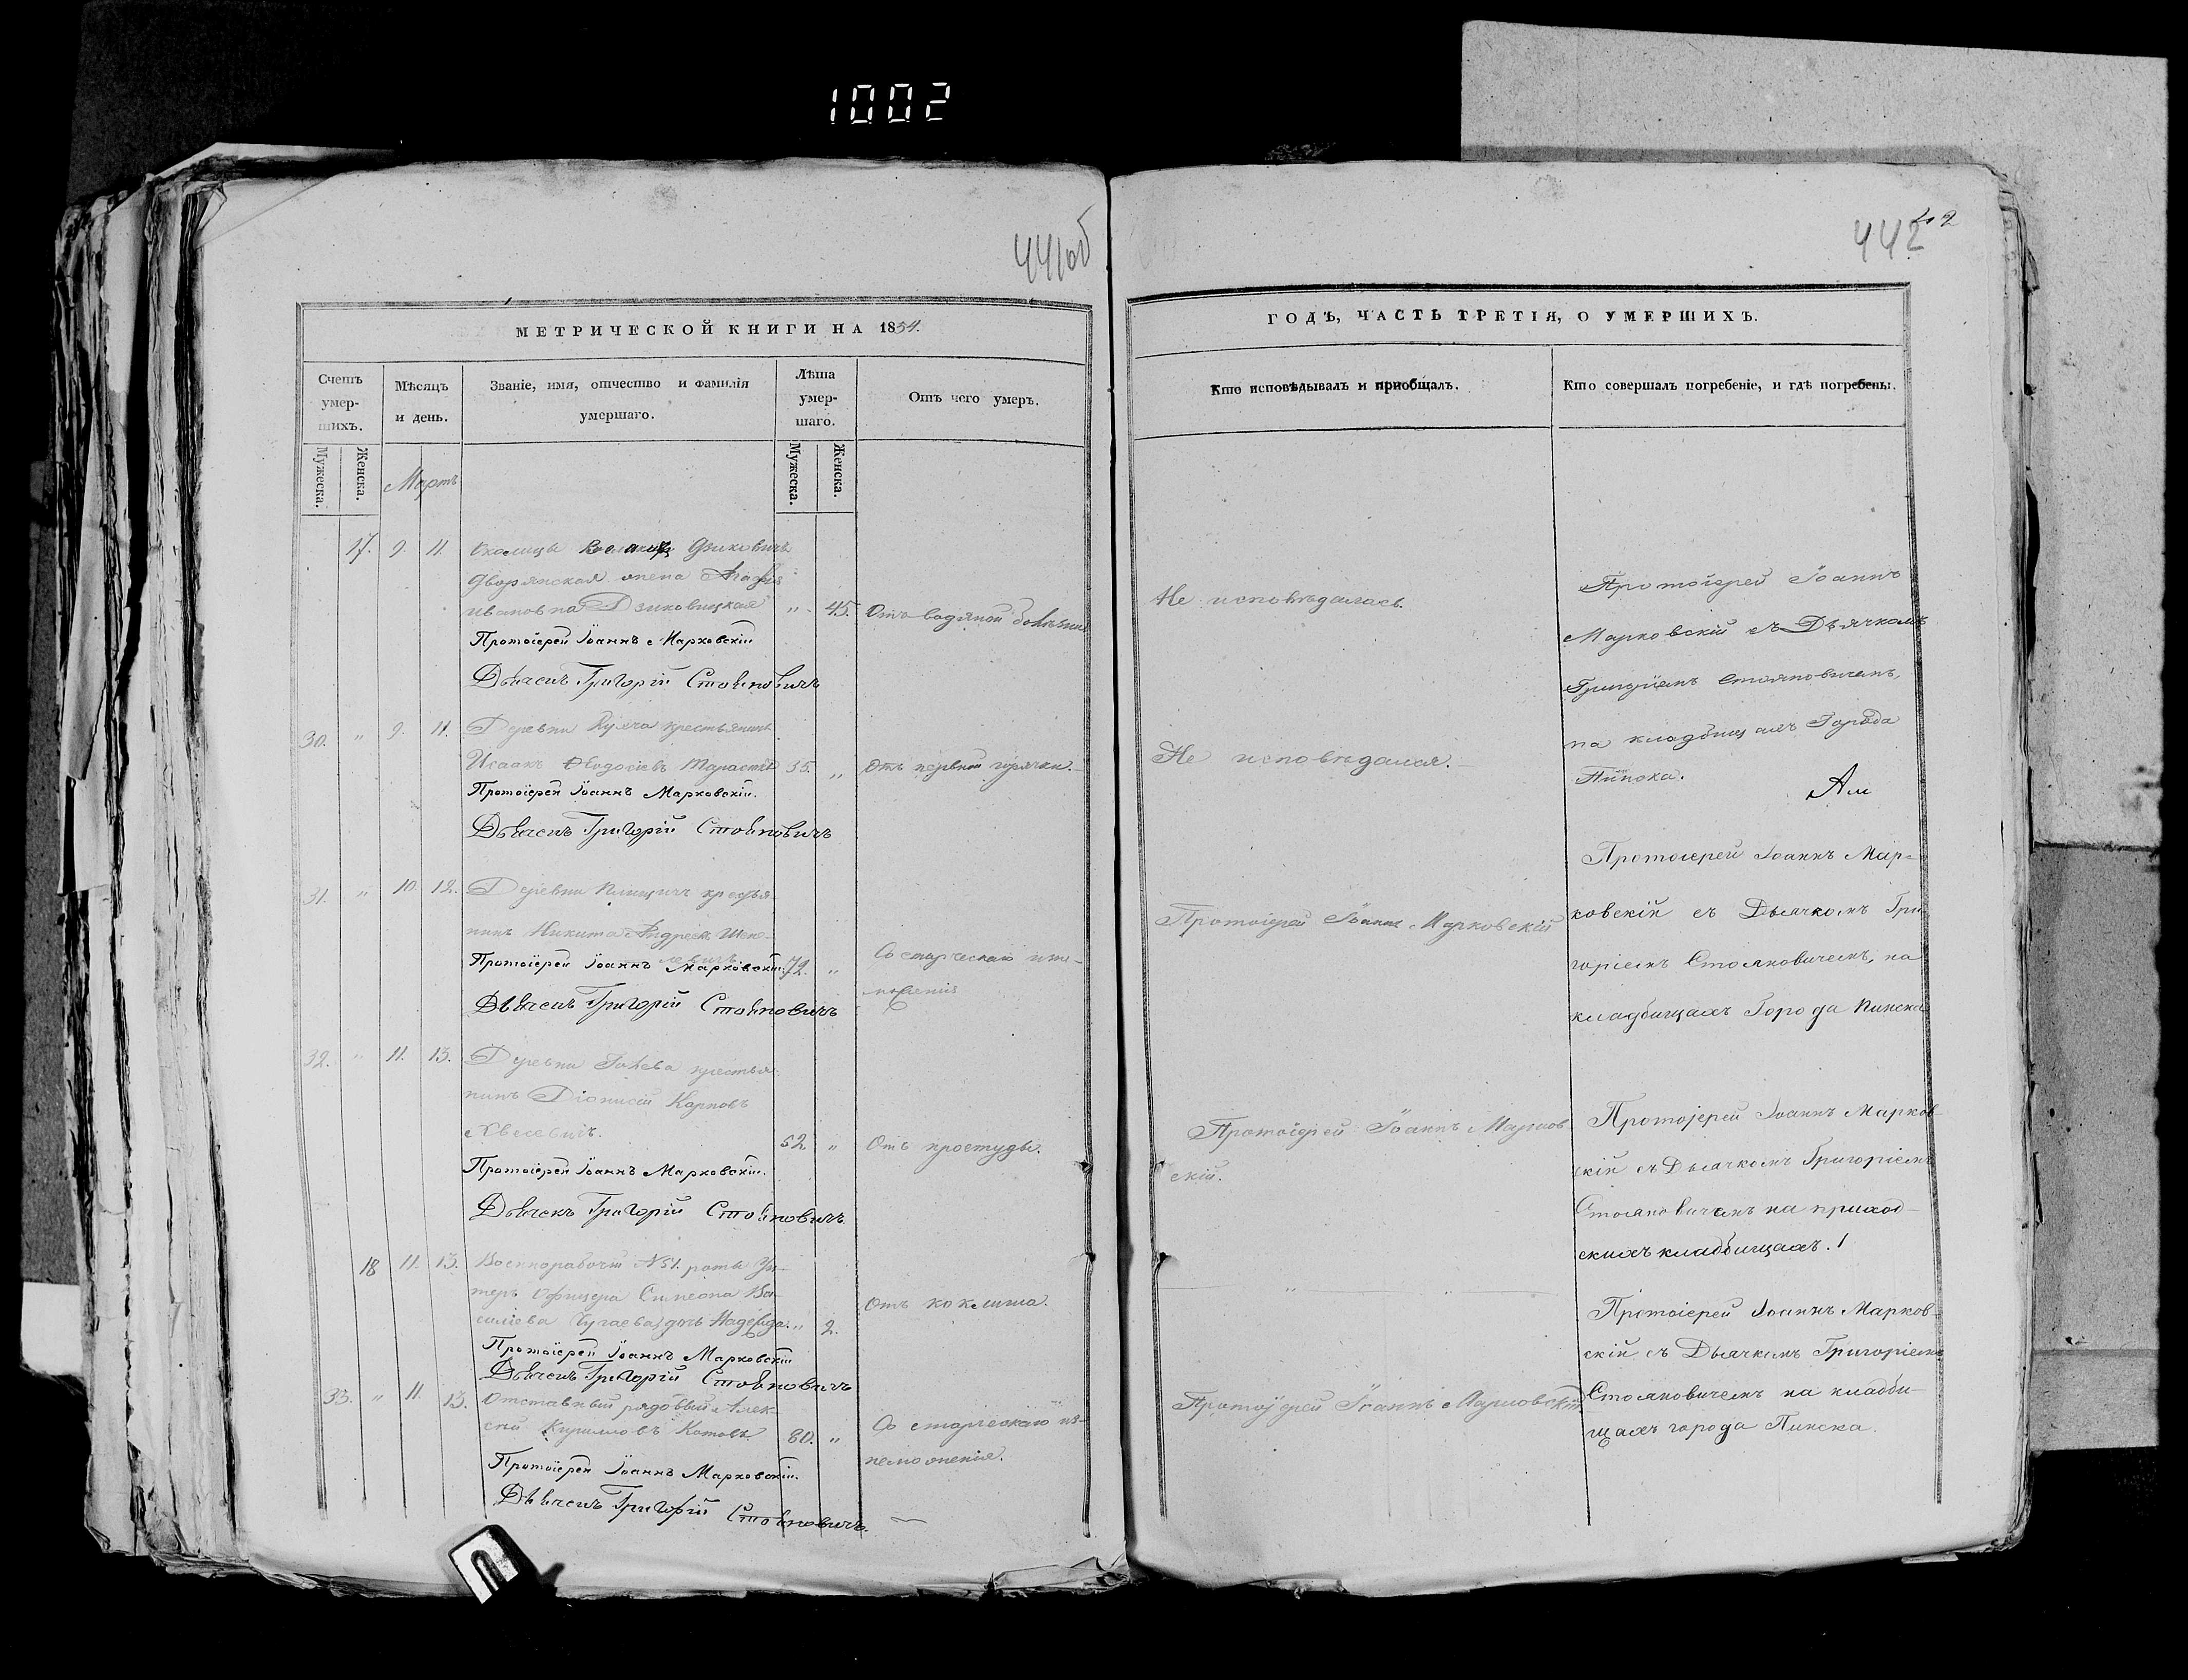 1002
441об
442
МЕТРИЧЕСКОЙ КНИГИ НА 1854.
Счетъ умер-шихъ.
Мѣсяцъ и день.
Званіе, имя, отчество и фамилія умершаго.
Лѣта умер-шаго.
Отъ чего умеръ.
Мужеска.
Женска.
Мартъ
Мужеска.
Женска.
17. 9. 11.
Дворянская Агафія
Ивановна Дзиковицкая „ 45. Отъ водяной болѣзни
Протоіерей Іоаннъ Марковскій
Дьячекъ Григорій Стояновичъ
30. „ 9. 11. Деревни крестьянинъ
Исаакъ Ѳеодосіевъ 35. „ Отъ нервной горячки.
Протоіерей Іоаннъ Марковскій.
Дьячекъ Григорій Стояновичъ
31. „ 10. 12. Деревни крестья-
нинъ Никита Андреевъ
Протоіерей Іоаннъ Марковскій. 72. „ Со старческаго изне-
моженія
Дьячекъ Григорій Стояновичъ
32. „ 11. 13. Деревни крестья-
нинъ Діонисій Карповъ
52 „ Отъ простуды.
Протоіерей Іоаннъ Марковскій.
Дьячекъ Григорій Стояновичъ
18 11. 13. Военнорабочей № 51. роты Ун-
теръ Офицера Симеона Ва-
силіева дочь Надежда „ 2. Отъ коклюша.
Протоіерей Іоаннъ Марковскій
Дьячекъ Григорій Стояновичъ
33. „ 11. 13. Отставный рядовый Алек-
сей Кирилловъ Котовъ 80. „ Со старческаго из-
неможенія.
Протоіерей Іоаннъ Марковскій.
Дьячекъ Григорій Стояновичъ.
ГОДЪ, ЧАСТЬ ТРЕТІЯ, О УМЕРШИХЪ.
Кто исповѣдывалъ и пріобщалъ.
Кто совершалъ погребеніе, и гдѣ погребены.
Не исповѣдалась.
Протоіерей Іоаннъ
Марковскій съ Дьячкомъ
Григоріемъ Стояновичемъ,
на кладбищахъ Города
Пинска.
Не исповѣдался.
Протоіерей Іоаннъ Марковскій
Протоіерей Іоаннъ Мар-
ковскій съ Дьячкомъ Гри-
горіемъ Стояновичемъ, на
кладбищахъ Города Пинска
Протоіерей Іоаннъ Марков-
скій.
Протоіерей Іоаннъ Марков-
скій съ Дьячкомъ Григоріемъ
Стояновичемъ на приход-
скихъ кладбищахъ.
„ „
Протоіерей Іоаннъ Марковскій
Протоіерей Іоаннъ Марков-
скій съ Дьячкомъ Григоріемъ
Стояновичемъ на кладби-
щахъ города Пинска.